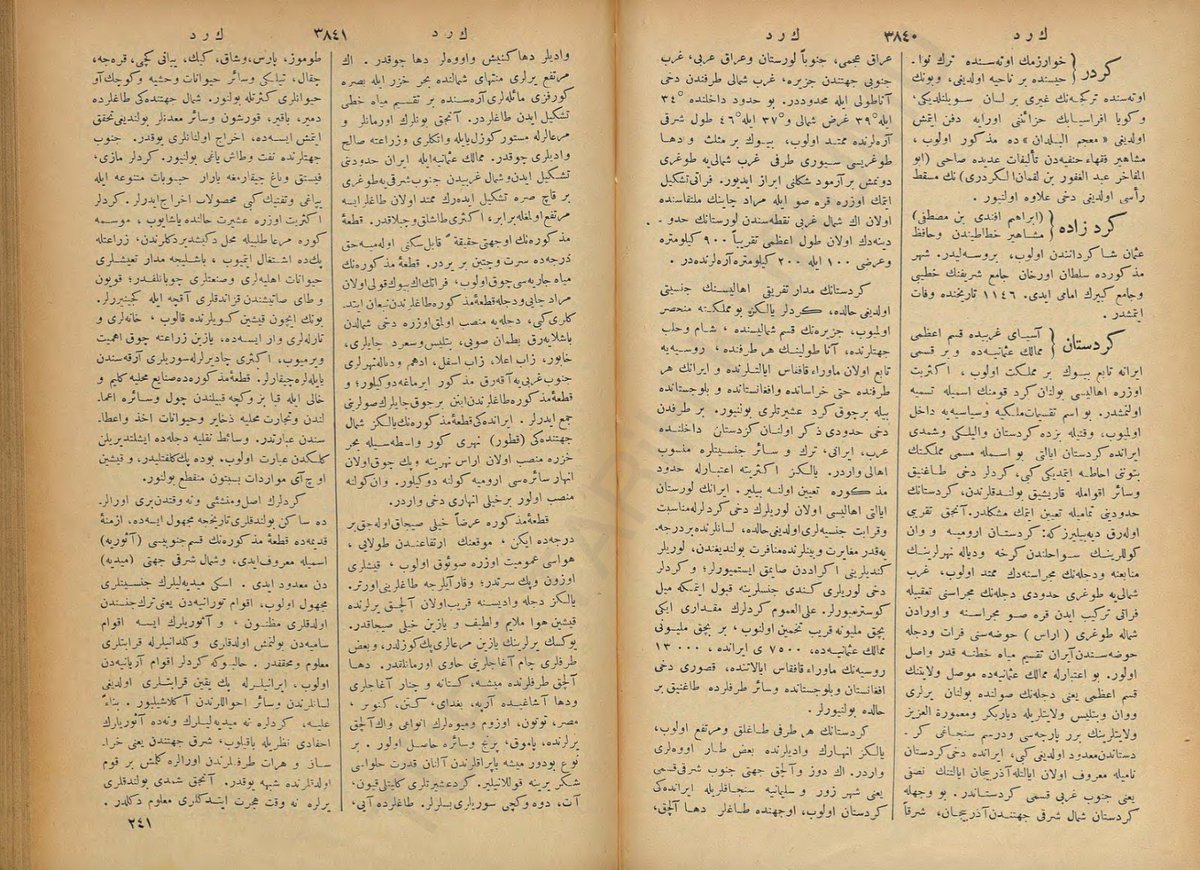 كرد
٣٨٤٠
كرد
كردر
خوارزمك اوته‌سنده ترك نوا.
حيسنده بر ناحيه اولديغى، وبونك
اوته‌سنده تركجه‌نك غيرى بر لسان سويلنلديكى،
وكويا افراسيابك خزائنى اورايه دفن ايتمش
اولديغى «معجم البلدان» ده مذكور اولوب،
مشاهير فقهاء حنفيه‌دن تأليفات عديده صاحبى (ابو
المفاخر عبد الغفور بن لقمان الكردرى) نك مسقط
رأسى اولديغى دخى علاوه اولنيور.
كرد زاده
(ابراهيم افندى بن مصطفى)
مشاهير خطاطيندن وحافظ
عثمان شاكرداننندن اولوب، بروسه‌ليدر. شهر
مذكورده سلطان اورخان جامع شريفنك خطيبى
وجامع كبيرك امامى ايدى. ١١٤٦ تاريخنده وفات
ايتمشدر.
كردستان
آسياى غربيده قسم اعظمى
ممالك عثمانيه‌ده وبر قسمى
ايرانه تابع بيوك بر مملكت اولوب، اكثريت
اوزره اهاليسى بولنان كرد قومنك اسميله تسميه
اولنمشدر. بو اسم تقسيمات ملكيه وسياسيه‌يه داخل
اولميوب، وقتيله بزده كردستان واليلكى وشمدى
ايرانده كردستان ايالتى بو اسمله مسمى مملكتك
بتوننى احاطه ايتمديكى كبى، كردلر دخى طاغنيق
وسائر اقوامله قاريشيق بولندقلرندن، كردستانك
حدودينى تماميله تعيين ايتمك مشكلدر. آنجق تقريبى
اوله‌رق ديه‌بيليرز كه: كردستان اروميه و وان
كوللرينك سواحلندن كرخه ودياله نهرلرينك
منابعنه ودجله‌نك مجراسنه‌دك ممتد اولوب، غرب
شمالى‌يه طوغرى حدودى دجله‌نك مجراسنى تعقيبله
فراتى تركيب ايدن قره صو مجراسنه و اورادن
شماله طوغرى (اراس) حوضه‌سنى فرات ودجله
حوضه‌سندن آيران تقسيم مياه خطنه قدر واصل
اولور. بو اعتبارله ممالك عثمانيه‌ده موصل ولايتنك
قسم اعظمى يعنى دجله‌نك صولنده بولنان يرلرى
ووان وبتليس ولايتلريله دياربكر ومعمورة العزيز
ولايتلرينك برر پارچه‌سى ودرسم سنجاغى كر.
دستاندن معدود اولديغى كبى، ايرانده دخى كردستان
ناميله معروف اولان ايالتله آذربيجان ايالتنك نصفى
يعنى جنوب غربى قسمى كردستاندر. بو وجهله
كردستان شمال شرقى جهتندن آذربيجان، شرقاً
عراق عجمى، جنوباً لورستان وعراق عربى، غرب
جنوبى جهتندن جزيره، غرب شمالى طرفندن دخى
آناطولى ايله محدوددر. بو حدود داخلنده ٣٤°
ايله ٣٩° عرض شمالى و ٣٧° ايله ٤٦° طول شرقى
آره‌لرنده ممتد اولوب، بيوك بر مثلث ودها
طوغريسى سيورى طرفى غرب شمالى‌يه طوغرى
دونمش بر آرمود شكلنى ابراز ايديور. فراتى تشكيل
ايتمك اوزره قره صو ايله مراد چاينك ملتقاسنده
اولان اك شمال غربى نقطه‌سندن لورستانك حدو.
دينه‌دك اولان طول اعظمى تقريباً ٩٠٠ كيلومتره
وعرضى ١٠٠ ايله ٢٠٠ كيلومتره آره‌لرنده‌در.
كردستانك مدار تفريقى اهاليسنك جنسيتى
اولديغى حالده، كردلر يالكز بو مملكته منحصر
اولميوب، جزيره‌نك قسم شماليسنده، شام وحلب
جهتلرنده، آناطولينك هر طرفنده، روسيه‌يه
تابع اولان ماوراء قافقاس ايالتلرنده و ايرانك هر
طرفنده حتى خراسانده وافغانستانده و بلوجستانده
بيله برچوق كرد عشيرتلرى بولنيور. بر طرفدن
دخى حدودى ذكر اولنان كردستان داخلنده
عرب، ايرانى، ترك و سائر جنسيتلره منسوب
اهالى واردر. يالكز اكثريته اعتبارله حدود
مذكوره تعيين اولنه بيلير. ايرانك لورستان
ايالتى اهاليسى اولان لوريلرك دخى كردلرله مناسبت
وقرابت جنسيه‌لرى اولديغى حالده، لسانلرنده بر درجه‌
يه‌قدر مغايرت وبينلرنده منافرت بولنديغندن، لوريلر
كنديلرينى اكراددن صايمق ايسته‌ميورلر؛ و كردلر
دخى لوريلرى كندى جنسلرينه قبول ايتمكه ميل
كوسترميورلر. على‌العموم كردلرك مقدارى ايكى
بچق مليونه قريب تخمين اولنوب، بر بچق مليونى
ممالك عثمانيه‌ده. ٧٥٠٠ ى ايرانده، ١٣٠٠٠
روسيه‌نك ماوراء قافقاس ايالاتنده، قصورى دخى
افغانستان وبلوجستانده وسائر طرفلرده طاغنيق بر
حالده بولنيورلر.
كردستانك هر طرفى طاغلق ومرتفع اولوب،
يالكز انهارك واديلرنده بعض طار اووه‌لرى
واردر. اك دوز وآلچق جهتى جنوب شرقى قسمى
يعنى شهر زور و سليمانيه سنجاقلريله ايرانده‌كى
كردستان اولوب، اوجهتده طاغلر دها آلچق،
كرد
٣٨٤١
كرد
واديلر دها كنيش واووه‌لر دها چوقدر. اك
مرتفع يرلرى منتهاى شمالنده بحر خزر ايله بصره
كورفزى مائله‌لرى آره‌سنده بر تقسيم مياه خطى
تشكيل ايدن طاغلردر. آنجق بونلرك اورمانلر و
مرعالرله مستور كوزل يايله واتكلرى وزراعته صالح
واديلرى چوقدر. ممالك عثمانيه ايله ايران حدودينى
تشكيل ايدن وشمال غربيدن جنوب شرقى‌يه طوغرى
بر قاچ صره تشكيل ايده‌رك ممتد اولان طاغلر ايسه
مرتفع اولمغله برابر، اكثرى طاشلق وچپلاقدر. قطعۀ
مذكوره‌نك اوجهتى حقيقةً قابل سكنى اوله‌ميه‌جق
درجه‌ده سرت وچتين بر يردر. قطعۀ مذكوره‌نك
مياه جاريه‌سى چوق اولوب، فراتك اك بيوك قولى اولان
مراد چايى ودجله قطعۀ مذكوره طاغلرندن نبعان ايتد.
كلرى كبى، دجله‌يه منصب اولمق اوزره دخى شمالدن
باشلايه‌رق بطمان صويى، بتليس وسعرد چايلرى،
خابور، زاب اعلا، زاب اسفل، ادهم ودياله نهرلرى
جنوب غربى‌يه آقه‌رق مذكور ايرماغه دوكيلور؛ و
قطعۀ مذكوره طاغلرندن اينن برچوق چايلرك صولرينى
جمع ايدرلر. ايرانده‌كى قطعۀ مذكوره‌نك يالكز شمال
جهتنده‌كى (قطور) نهرى كور واسطه‌سيله بحر
خزره منصب اولان اراس نهرينه وپك چوق اولان
انهار سائره‌سى اروميه كولنه دوكيلور. وان كولنه
منصب اولور بر خيلى انهارى دخى واردر.
قطعۀ مذكوره عرضاً خيلى صيجاق اوله‌جق بر
درجه‌ده ايكن، موقعنك ارتفاعندن طولايى،
هواسى عموميت اوزره صوئوق اولوب، قيشلرى
اوزون وپك سرتدر؛ وقار آيلرجه طاغلرينى اورتر.
يالكز دجله واديسنه قريب اولان آلچق يرلرنده
قيشين هوا ملايم ولطيف و يازين خيلى صيجاقدر.
يوكسك يرلرينك يازين مرعالرى پك كوزلدر، وبعض
طرفلرى چام آغاجلرينى حاوى اورمانلقدر. دها
آلچق طرفلرنده ميشه، كستانه و چنار آغاجلرى
ودها آشاغيده آرپه، بغداى، كتن، كنوير،
مصر، توتون، اوزوم وميوه‌لرك انواعى واك آلچق
يرلرنده، پاموق، پرنج وسائره حاصل اولور. بر
نوع بودور ميشه ياپراقلرندن آلنان قدرت حلواسى
شكر يرينه قوللانيلير. كرد عشيرتلرى كليتلى قويون،
آت، دوه وكچى سوريلرى بسلرلر. طاغلرده آيى،
كرد
طوموز، پارس، وشاق، كيك، يبانى كچى، قره‌جه،
چقال، تيلكى وسائر حيوانات وحشيه وكوچك آو
حيوانلرى كثرتله بولنور. شمال جهتنده‌كى طاغلرده
دمير، باقير، قورشون وسائر معدنلر بولنديغى تحقق
ايتمش ايسه‌ده، اخراج اولنانلرى يوقدر. جنوب
جهتلرنده نفت وطاش ياغى بولنيور. كردلر مازى،
فيستق وياغ چيقارمغه يارار حبوبات متنوعه ايله
يپاغى وتفتيك كبى محصولات اخراج ايدرلر. كردلر
اكثريت اوزره عشيرت حالنده ياشايوب، موسمنه
كوره مرعا طلبيله محل دكيشديردكلرندن، زراعتله
پك‌ده اشتغال ايتميوب، باشليجه مدار تعيشلرى
حيوانات اهليه‌لرى وصنعتلرى چوبانلقدر؛ قويون
و طاى صاتيشندن قزاندقلرى آقچه ايله كچينيرلر.
بونك ايچون قيشين كويلرنده قالوب، خانه‌لرى و
تارلالرى وار ايسه‌ده، يازين زراعته چوق اهميت
ويرميوب، اكثرى چاديرلرله سوريلرى آرقه‌سندن
يايله‌لره چيقارلر. قطعۀ مذكوره‌ده صنايع محليه كليم و
خالى ايله قبا بز وكچه قبيلندن چول وسائره اعما.
لندن وتجارت محليه ذخاير وحيوانات اخذ واعطا.
سندن عبارتدر. وسائط نقليه دجله‌ده ايشلتديريلن
كلكدن عبارت اولوب. بوده پك كلفتليدر، و قيشين
اوچ آى مواردات بسبتون منقطع بولنور.
كردلرك اصل ومنشئى ونه وقتدن‌برى اورالر.
ده ساكن بولندقلرى تاريخجه مجهول ايسه‌ده، ازمنۀ
قديمه‌ده قطعۀ مذكوره‌نك قسم جنوبيسى (آثوريه)
اسميله معروف ايدى، وشمال شرقى جهتى (ميديه)
دن معدود ايدى. اسكى ميديه‌ليلرك جنسيتلرى
مجهول اولوب، اقوام تورانيه‌دن يعنى ترك جنسندن
اولدقلرى مظنون، و آثوريلرك ايسه اقوام
ساميه‌دن بولنمش اولدقلرى وكلدانيلرله قرابتلرى
معلوم ومحققدر. حالبوكه كردلر اقوام آريانيه‌دن
اولوب، ايرانيلرله پك يقين قرابتلرى اولديغى
لسانلرندن وسائر احواللرندن آكلاشيليور. بناءً
عليه، كردلره نه ميديه‌ليلرك ونه‌ده آثوريلرك
احفادى نظريله باقيلوب، شرق جهتندن يعنى خرا.
سان و هرات طرفلرندن اورالره كلمش بر قوم
اولدقلرنده شبهه يوقدر. آنجق شمدى بولندقلرى
يرلره نه وقت هجرت ايتدكلرى معلوم دكلدر.
٢٤١